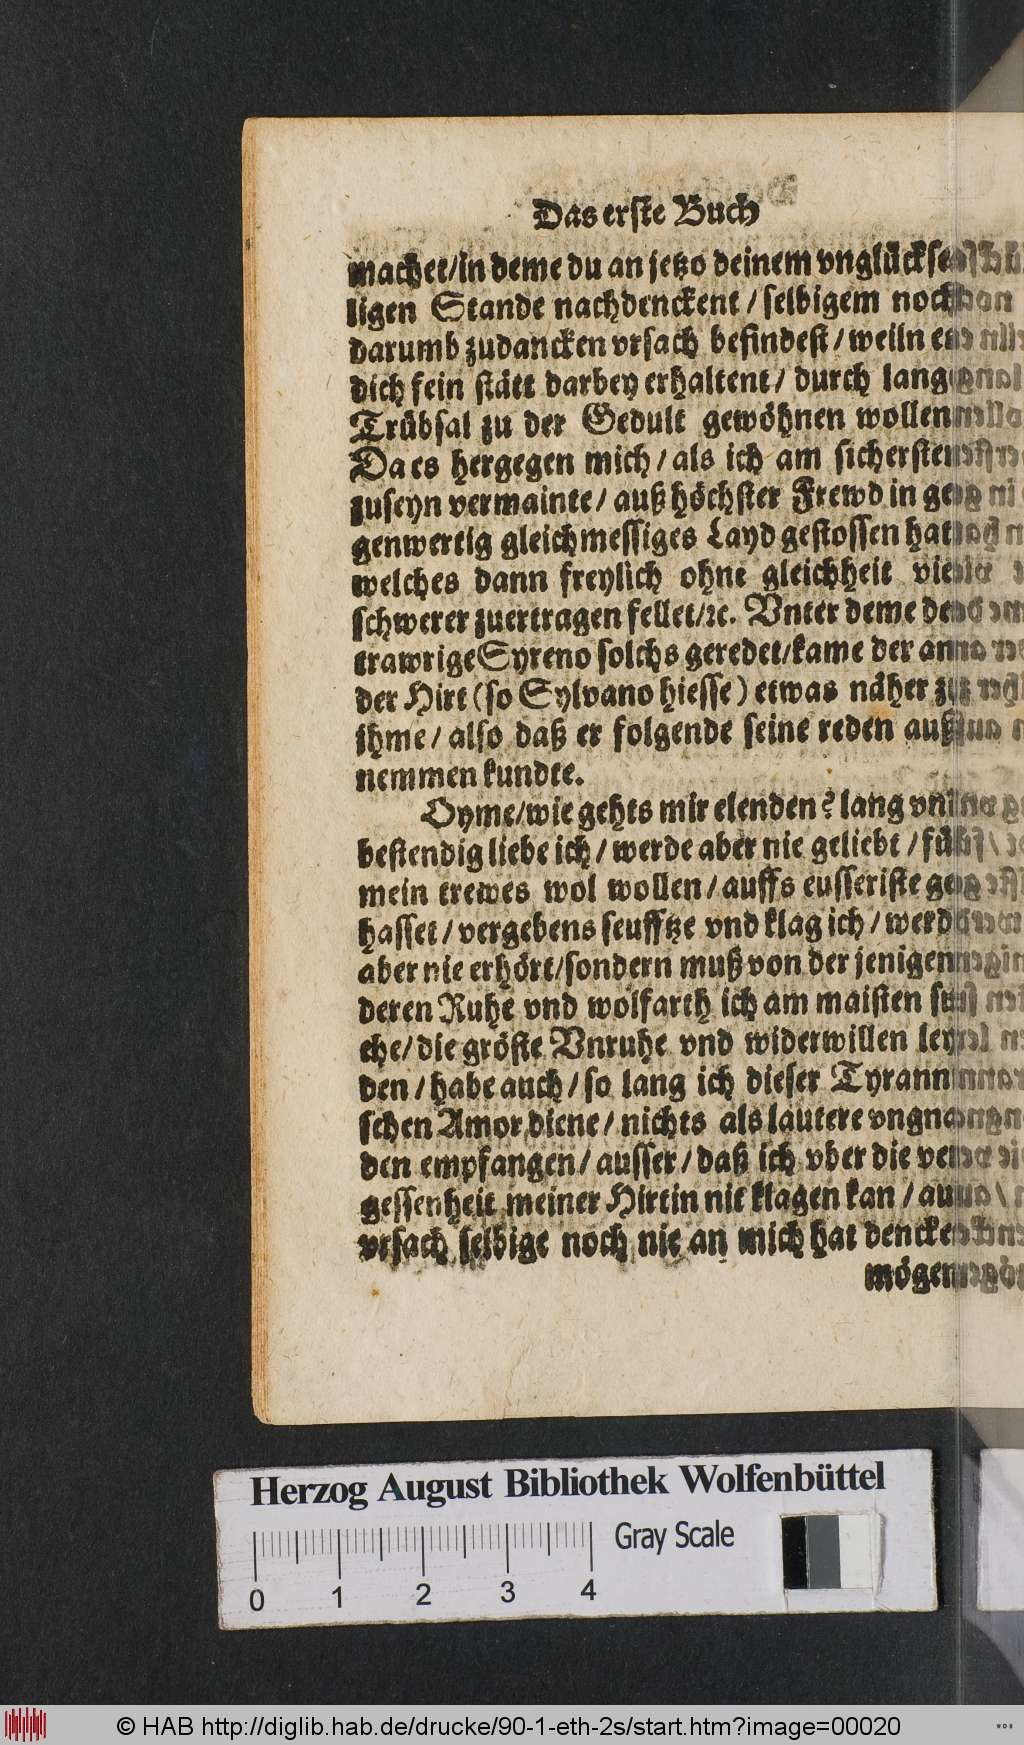 Das erste Buch
machet/in deme du an jetzo deinem vnglückse-
ligen Stande nachdenckent/selbigem noch
darumb zudancken vrsach befindest/weiln er
dich fein stätt darbey erhaltent/durch lang
Trübsal zu der Gedult gewöhnen wollen
Da es hergegen mich/als ich am sichersten
zuseyn vermainte/auß höchster Frewd in ge-
genwertig gleichmessiges Layd gestossen hat
welches dann freylich ohne gleichheit viel
schwerer zuertragen fellet/ꝛc. Vnter deme der
trawrige Syreno solchs geredet/kame der an-
der Hirt (so Sylvano hiesse) etwas näher zu
ihme/also daß er folgende seine reden auß-
nemmen kundte.
Oyme/wie gehts mir elenden? lang vnd
bestendig liebe ich/werde aber nie geliebt/für
mein trewes wol wollen/auffs eusseriste ge-
hasset/vergebens seufftze vnd klag ich/werd
aber nie erhört/sondern muß von der jenigen
deren Ruhe vnd wolfarth ich am maisten su-
che/die gröste Vnruhe vnd widerwillen ley-
den/habe auch/so lang ich dieser Tyranni-
schen Amor diene/nichts als lautere vngna-
den empfangen/ausser/daß ich vber die ver-
gessenheit meiner Hirtin nit klagen kan/auß
vrsach selbige noch nie an mich hat dencken
mögen
Herzog August Bibliothek Wolfenbüttel
Gray Scale
0 1 2 3 4
© HAB http://diglib.hab.de/drucke/90-1-eth-2s/start.htm?image=00020